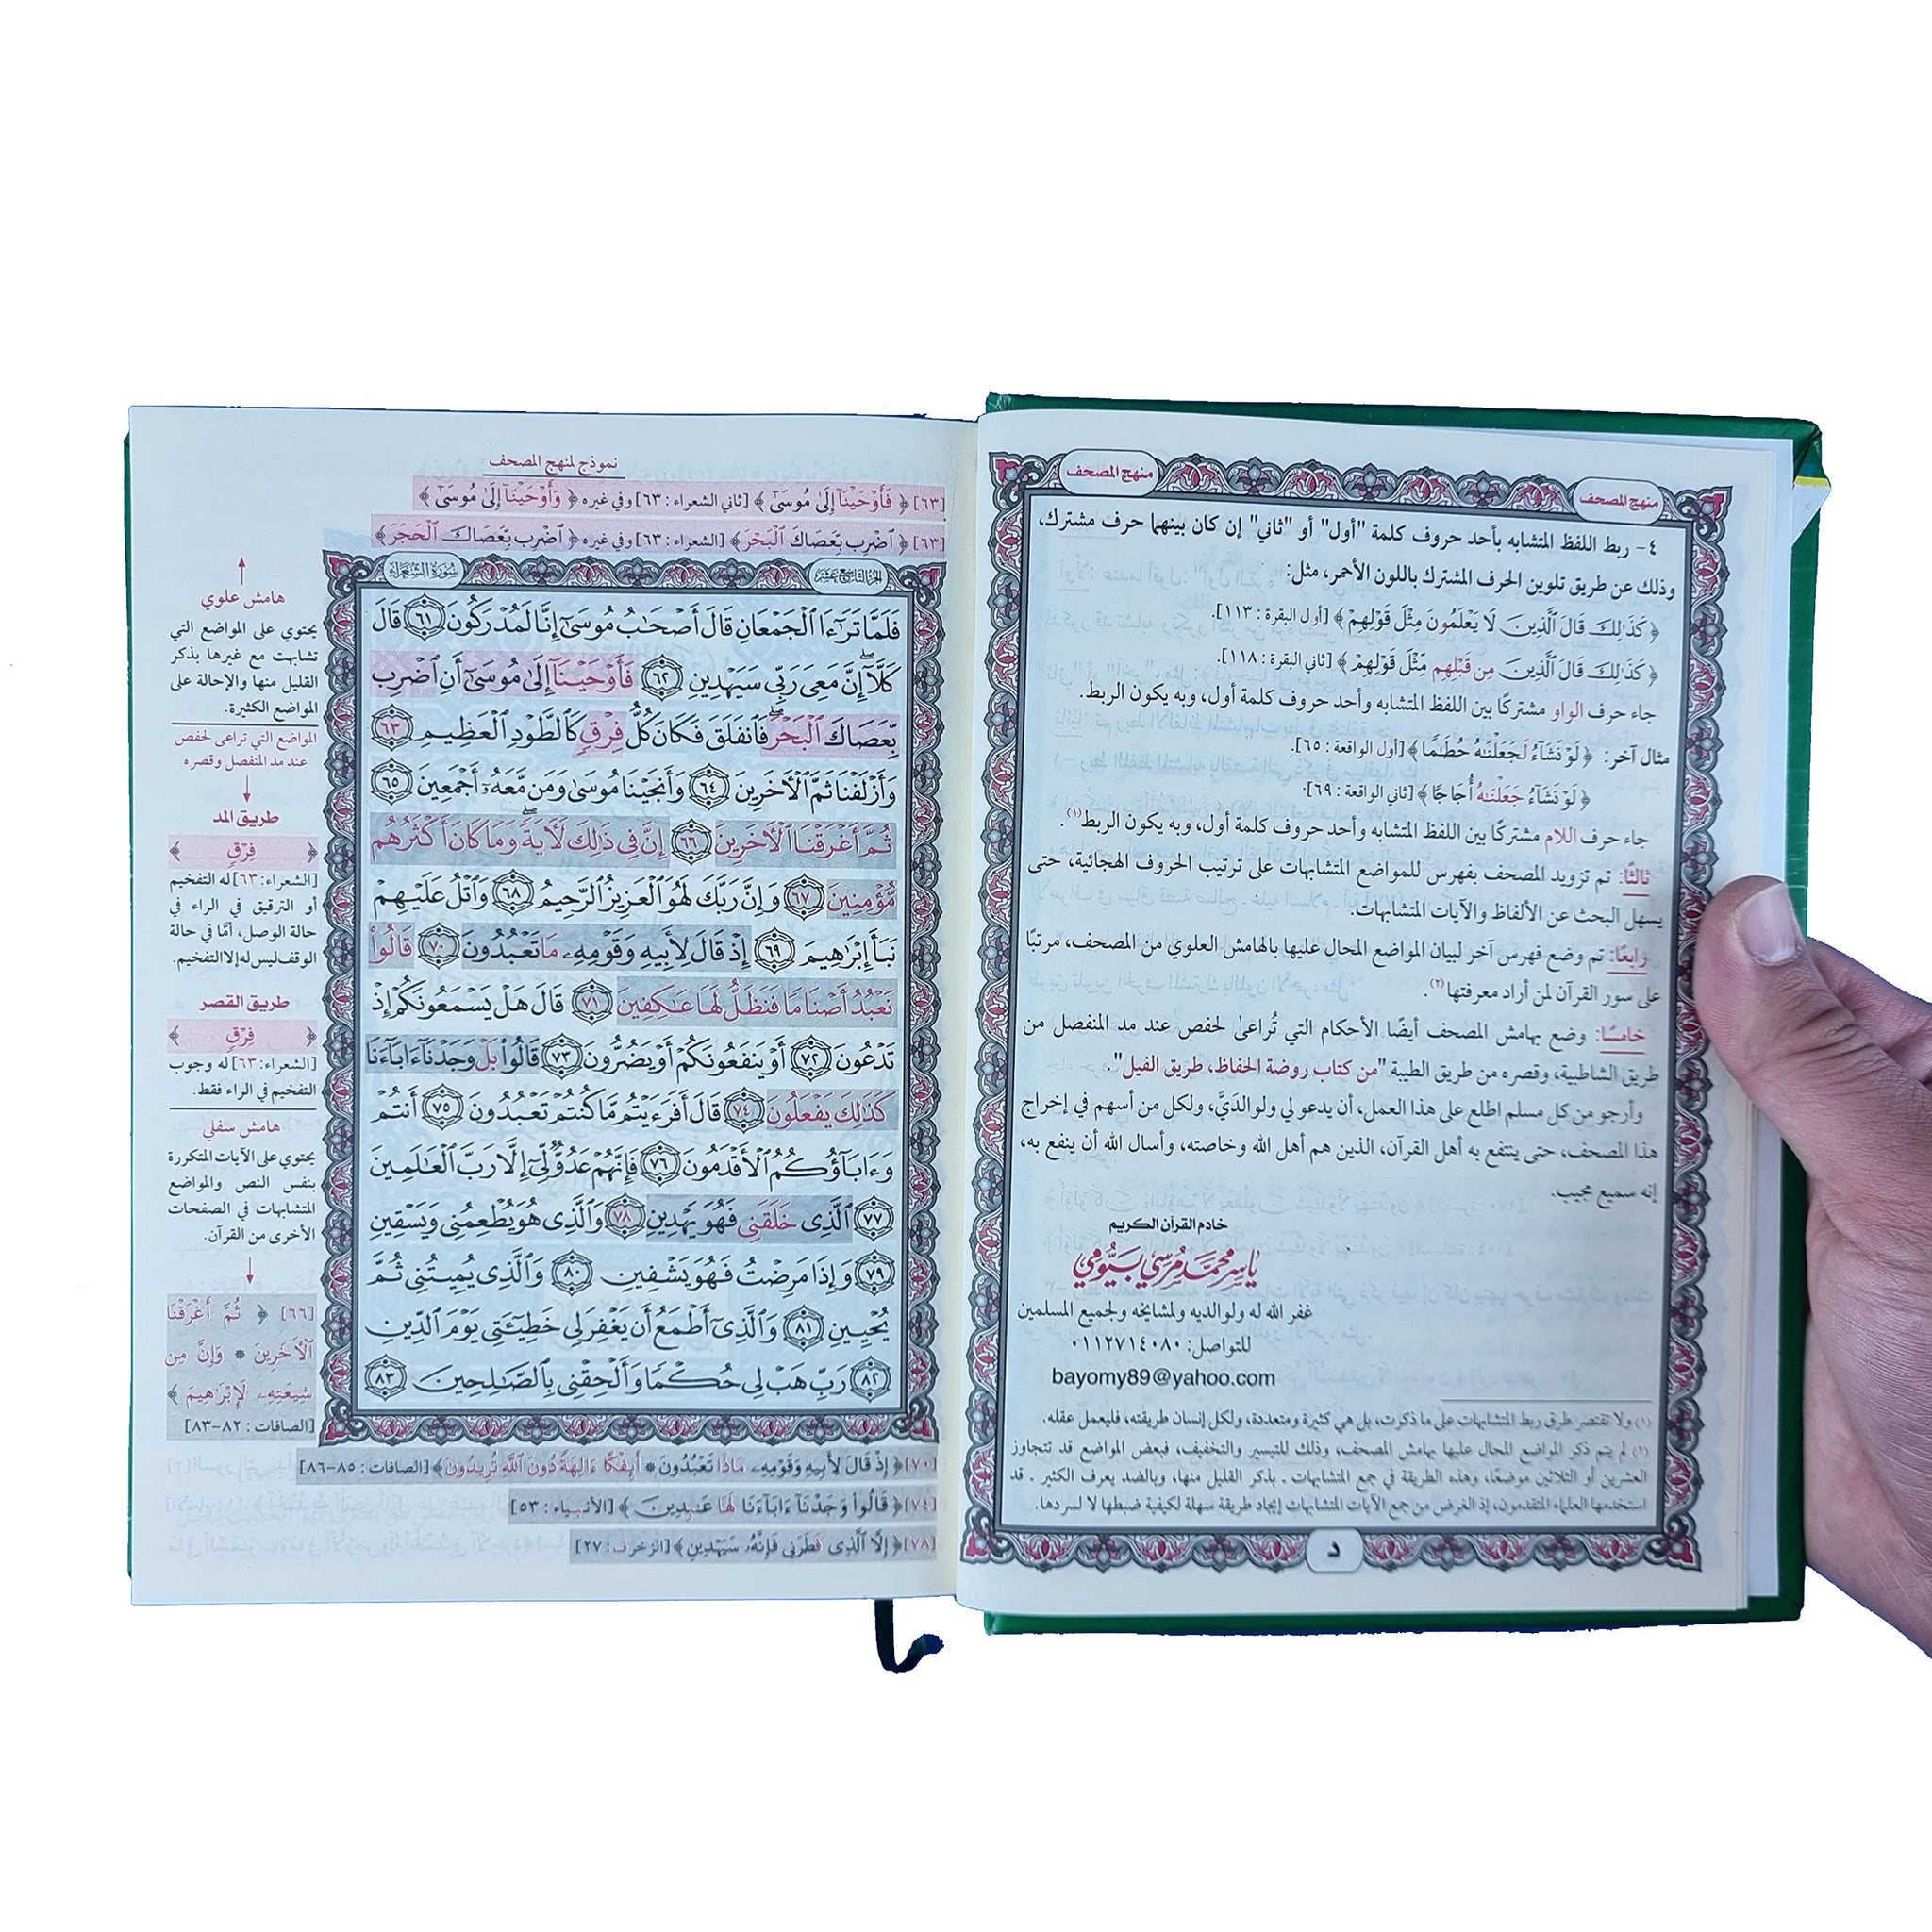 منهج المصحف
منهج المصحف
٤- ربط اللفظ المتشابه بأحد حروف كلمة "أول" أو "ثاني" إن كان بينهما حرف مشترك،
وذلك عن طريق تلوين الحرف المشترك باللون الأحمر، مثل:
﴿ كَذَٰلِكَ قَالَ ٱلَّذِينَ لَا يَعْلَمُونَ مِثْلَ قَوْلِهِمْ ﴾ [أول البقرة : ١١٣].
﴿ كَذَٰلِكَ قَالَ ٱلَّذِينَ مِن قَبْلِهِم مِّثْلَ قَوْلِهِمْ ﴾ [ثاني البقرة : ١١٨].
جاء حرف الواو مشتركًا بين اللفظ المتشابه وأحد حروف كلمة أول، وبه يكون الربط.
مثال آخر: ﴿ لَوْ نَشَآءُ لَجَعَلْنَٰهُ حُطَٰمًا ﴾ [أول الواقعة : ٦٥].
﴿ لَوْ نَشَآءُ جَعَلْنَٰهُ أُجَاجًا ﴾ [ثاني الواقعة : ٦٩].
جاء حرف اللام مشتركًا بين اللفظ المتشابه وأحد حروف كلمة أول، وبه يكون الربط(١).
ثالثًا: تم تزويد المصحف بفهرس للمواضع المتشابهات على ترتيب الحروف الهجائية، حتى
يسهل البحث عن الألفاظ والآيات المتشابهات.
رابعًا: تم وضع فهرس آخر لبيان المواضع المحال عليها بالهامش العلوي من المصحف، مرتبًا
على سور القرآن لمن أراد معرفتها(٢).
خامسًا: وضع بهامش المصحف أيضًا الأحكام التي تُراعىٰ لحفص عند مد المنفصل من
طريق الشاطبية، وقصره من طريق الطيبة "من كتاب روضة الحفاظ، طريق الفيل".
وأرجو من كل مسلم اطلع على هذا العمل، أن يدعو لي ولوالدَيَّ، ولكل من أسهم في إخراج
هذا المصحف، حتى ينتفع به أهل القرآن، الذين هم أهل الله وخاصته، وأسال الله أن ينفع به،
إنه سميع مجيب.
خادم القرآن الكريم
ياسر محمد مرسي بيومي
غفر الله له ولوالديه ولمشايخه ولجميع المسلمين
للتواصل: ٠١١٢٧١٤٠٨٠
bayomy89@yahoo.com
(١) ولا تقتصر طرق ربط المتشابهات على ما ذكرت، بل هي كثيرة ومتعددة، ولكل إنسان طريقته، فليعمل عقله.
(٢) لم يتم ذكر المواضع المحال عليها بهامش المصحف، وذلك للتيسير والتخفيف، فبعض المواضع قد تتجاوز
العشرين أو الثلاثين موضعًا، وهذه الطريقة في جمع المتشابهات ـ بذكر القليل منها، وبالضد يعرف الكثير ـ قد
استخدمها العلماء المتقدمون، إذ الغرض من جمع الآيات المتشابهات إيجاد طريقة سهلة لكيفية ضبطها لا لسردها.
د
نموذج لمنهج المصحف
[٦٣] ﴿ فَأَوْحَيْنَآ إِلَىٰ مُوسَىٰٓ ﴾ [ثاني الشعراء : ٦٣] وفي غيره ﴿ وَأَوْحَيْنَآ إِلَىٰ مُوسَىٰٓ ﴾
[٦٣] ﴿ ٱضْرِب بِّعَصَاكَ ٱلْبَحْرَ ﴾ [الشعراء : ٦٣] وفي غيره ﴿ ٱضْرِب بِّعَصَاكَ ٱلْحَجَرَ ﴾
الجزء التاسع عشر
سورة الشعراء
فَلَمَّا تَرَٰٓءَا ٱلْجَمْعَانِ قَالَ أَصْحَٰبُ مُوسَىٰٓ إِنَّا لَمُدْرَكُونَ ٦١ قَالَ
كَلَّآ ۖ إِنَّ مَعِىَ رَبِّى سَيَهْدِينِ ٦٢ فَأَوْحَيْنَآ إِلَىٰ مُوسَىٰٓ أَنِ ٱضْرِب
بِّعَصَاكَ ٱلْبَحْرَ ۖ فَٱنفَلَقَ فَكَانَ كُلُّ فِرْقٍ كَٱلطَّوْدِ ٱلْعَظِيمِ ٦٣
وَأَزْلَفْنَا ثَمَّ ٱلْأَخَرِينَ ٦٤ وَأَنجَيْنَا مُوسَىٰ وَمَن مَّعَهُۥٓ أَجْمَعِينَ ٦٥
ثُمَّ أَغْرَقْنَا ٱلْأَخَرِينَ ٦٦ إِنَّ فِى ذَٰلِكَ لَأَيَةً ۖ وَمَا كَانَ أَكْثَرُهُم
مُّؤْمِنِينَ ٦٧ وَإِنَّ رَبَّكَ لَهُوَ ٱلْعَزِيزُ ٱلرَّحِيمُ ٦٨ وَٱتْلُ عَلَيْهِمْ
نَبَأَ إِبْرَٰهِيمَ ٦٩ إِذْ قَالَ لِأَبِيهِ وَقَوْمِهِۦ مَا تَعْبُدُونَ ٧٠ قَالُوا۟
نَعْبُدُ أَصْنَامًا فَنَظَلُّ لَهَا عَٰكِفِينَ ٧١ قَالَ هَلْ يَسْمَعُونَكُمْ إِذْ
تَدْعُونَ ٧٢ أَوْ يَنفَعُونَكُمْ أَوْ يَضُرُّونَ ٧٣ قَالُوا۟ بَلْ وَجَدْنَآ ءَابَآءَنَا
كَذَٰلِكَ يَفْعَلُونَ ٧٤ قَالَ أَفَرَءَيْتُم مَّا كُنتُمْ تَعْبُدُونَ ٧٥ أَنتُمْ
وَءَابَآؤُكُمُ ٱلْأَقْدَمُونَ ٧٦ فَإِنَّهُمْ عَدُوٌّ لِّىٓ إِلَّا رَبَّ ٱلْعَٰلَمِينَ
٧٧ ٱلَّذِى خَلَقَنِى فَهُوَ يَهْدِينِ ٧٨ وَٱلَّذِى هُوَ يُطْعِمُنِى وَيَسْقِينِ
٧٩ وَإِذَا مَرِضْتُ فَهُوَ يَشْفِينِ ٨٠ وَٱلَّذِى يُمِيتُنِى ثُمَّ
يُحْيِينِ ٨١ وَٱلَّذِىٓ أَطْمَعُ أَن يَغْفِرَ لِى خَطِيٓـَٔتِى يَوْمَ ٱلدِّينِ
٨٢ رَبِّ هَبْ لِى حُكْمًا وَأَلْحِقْنِى بِٱلصَّٰلِحِينَ ٨٣
[٧٠] ﴿ إِذْ قَالَ لِأَبِيهِ وَقَوْمِهِۦ مَاذَا تَعْبُدُونَ * أَئِفْكًا ءَالِهَةً دُونَ ٱللَّهِ تُرِيدُونَ ﴾ [الصافات : ٨٥-٨٦]
[٧٤] ﴿ قَالُوا۟ وَجَدْنَآ ءَابَآءَنَا لَهَا عَٰبِدِينَ ﴾ [الأنبياء : ٥٣]
[٧٨] ﴿ إِلَّا ٱلَّذِى فَطَرَنِى فَإِنَّهُۥ سَيَهْدِينِ ﴾ [الزخرف : ٢٧]
هامش علوي
يحتوي على المواضع التي
تشابهت مع غيرها بذكر
القليل منها والإحالة على
المواضع الكثيرة.
المواضع التي تراعى لحفص
عند مد المنفصل وقصره
طريق المد
﴿ فِرْقٍ ﴾
[الشعراء: ٦٣] له التفخيم
أو الترقيق في الراء في
حالة الوصل، أمَّا في حالة
الوقف ليس له إلا التفخيم.
طريق القصر
﴿ فِرْقٍ ﴾
[الشعراء: ٦٣] له وجوب
التفخيم في الراء فقط.
هامش سفلي
يحتوي على الآيات المتكررة
بنفس النص والمواضع
المتشابهات في الصفحات
الأخرى من القرآن.
[٦٦] ﴿ ثُمَّ أَغْرَقْنَا
ٱلْأَخَرِينَ * وَإِنَّ مِن
شِيعَتِهِۦ لَإِبْرَٰهِيمَ ﴾
[الصافات : ٨٢-٨٣]